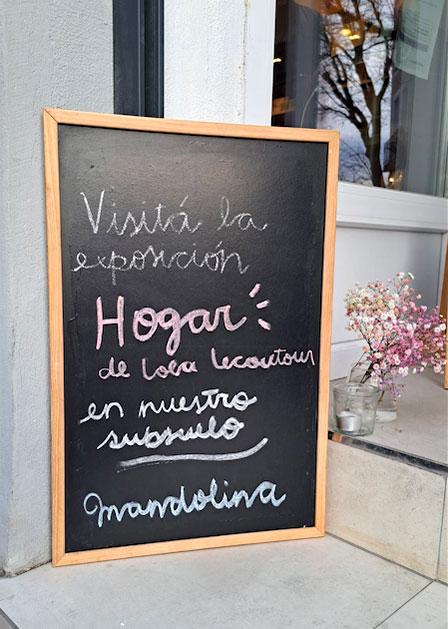 Visitá la
exposición
Hogar
de Lola Lecoutour
en nuestro
subsuelo
mandolina